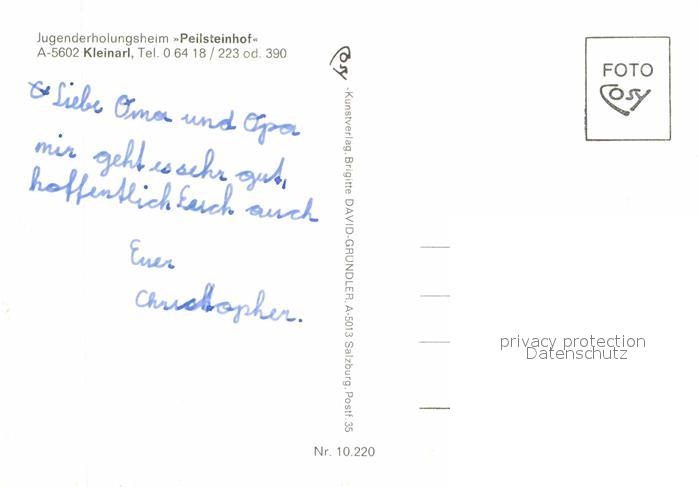 Jugenderholungsheim »Peilsteinhof«
A-5602 Kleinarl, Tel. 0 64 18 / 223 od. 390
Liebe Oma und Opa
mir geht es sehr gut,
hoffentlich Euch auch
Euer
Christopher.
Cosy -Kunstverlag, Brigitte DAVID-GRÜNDLER, A-5013 Salzburg, Postf. 35
FOTO
Cosy
privacy protection
Datenschutz
Nr. 10.220